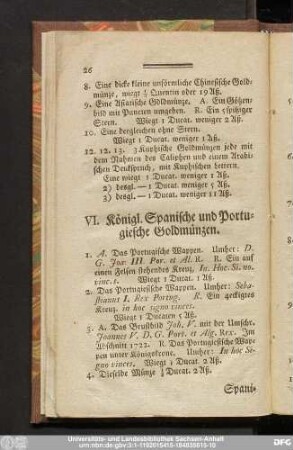 26
8. Eine dicke kleine unförmliche Chinesische Gold-
münze, wiegt ⅔ Quentin oder 19 Aß.
9. Eine Asiatische Goldmünze. A. Ein Götzen-
bild mit Puncten umgeben. R. Ein spitziger
Stern. Wiegt 1 Ducat. weniger 2 Aß.
10. Eine dergleichen ohne Stern.
Wiegt 1 Ducat. weniger 1 Aß.
12. 12. 13. 3 Kuphische Goldmünzen jede mit
dem Nahmen des Caliphen und einem Arabi-
schen Denkspruch, mit Kuphischen Lettern.
Eine wiegt 1 Ducat. weniger 1 Aß.
2) desgl. — 1 Ducat. weniger 5 Aß.
3) desgl. — 1 Ducat. weniger 11 Aß.
VI. Königl. Spanische und Portu-
giesche Goldmünzen.
1. A. Das Portugische Wappen. Umher: D.
G. Jux III. Por. et Al. R. R. Ein auf
einen Felsen stehendes Kreuz, In. Hoc. Si. no.
vince. s. Wiegt 1 Ducat. 1 Aß.
2. Das Portugiesische Wappen. Umher: Seba-
stianus I. Rex Portug. R. Ein zackigtes
Kreuz, in hoc signo vinces.
Wiegt 1 Ducaten 5 Aß.
3. A. Das Brustbild Joh. V. mit der Umschr.
Joannes V. D. G. Port. et Alg. Rex. Im
Abschnitt 1722. R. Das Portugiesische Wap-
pen unter Königskrone. Umher: In hoc Si-
gno vinces. Wiegt Ducat. 2 Aß.
4. Dieselbe Münze Ducat. 2 Aß.
Spani-
Universitäts- und Landesbibliothek Sachsen-Anhalt
urn:nbn:de:gbv:3:1-1192015415-184835815-10
DFG